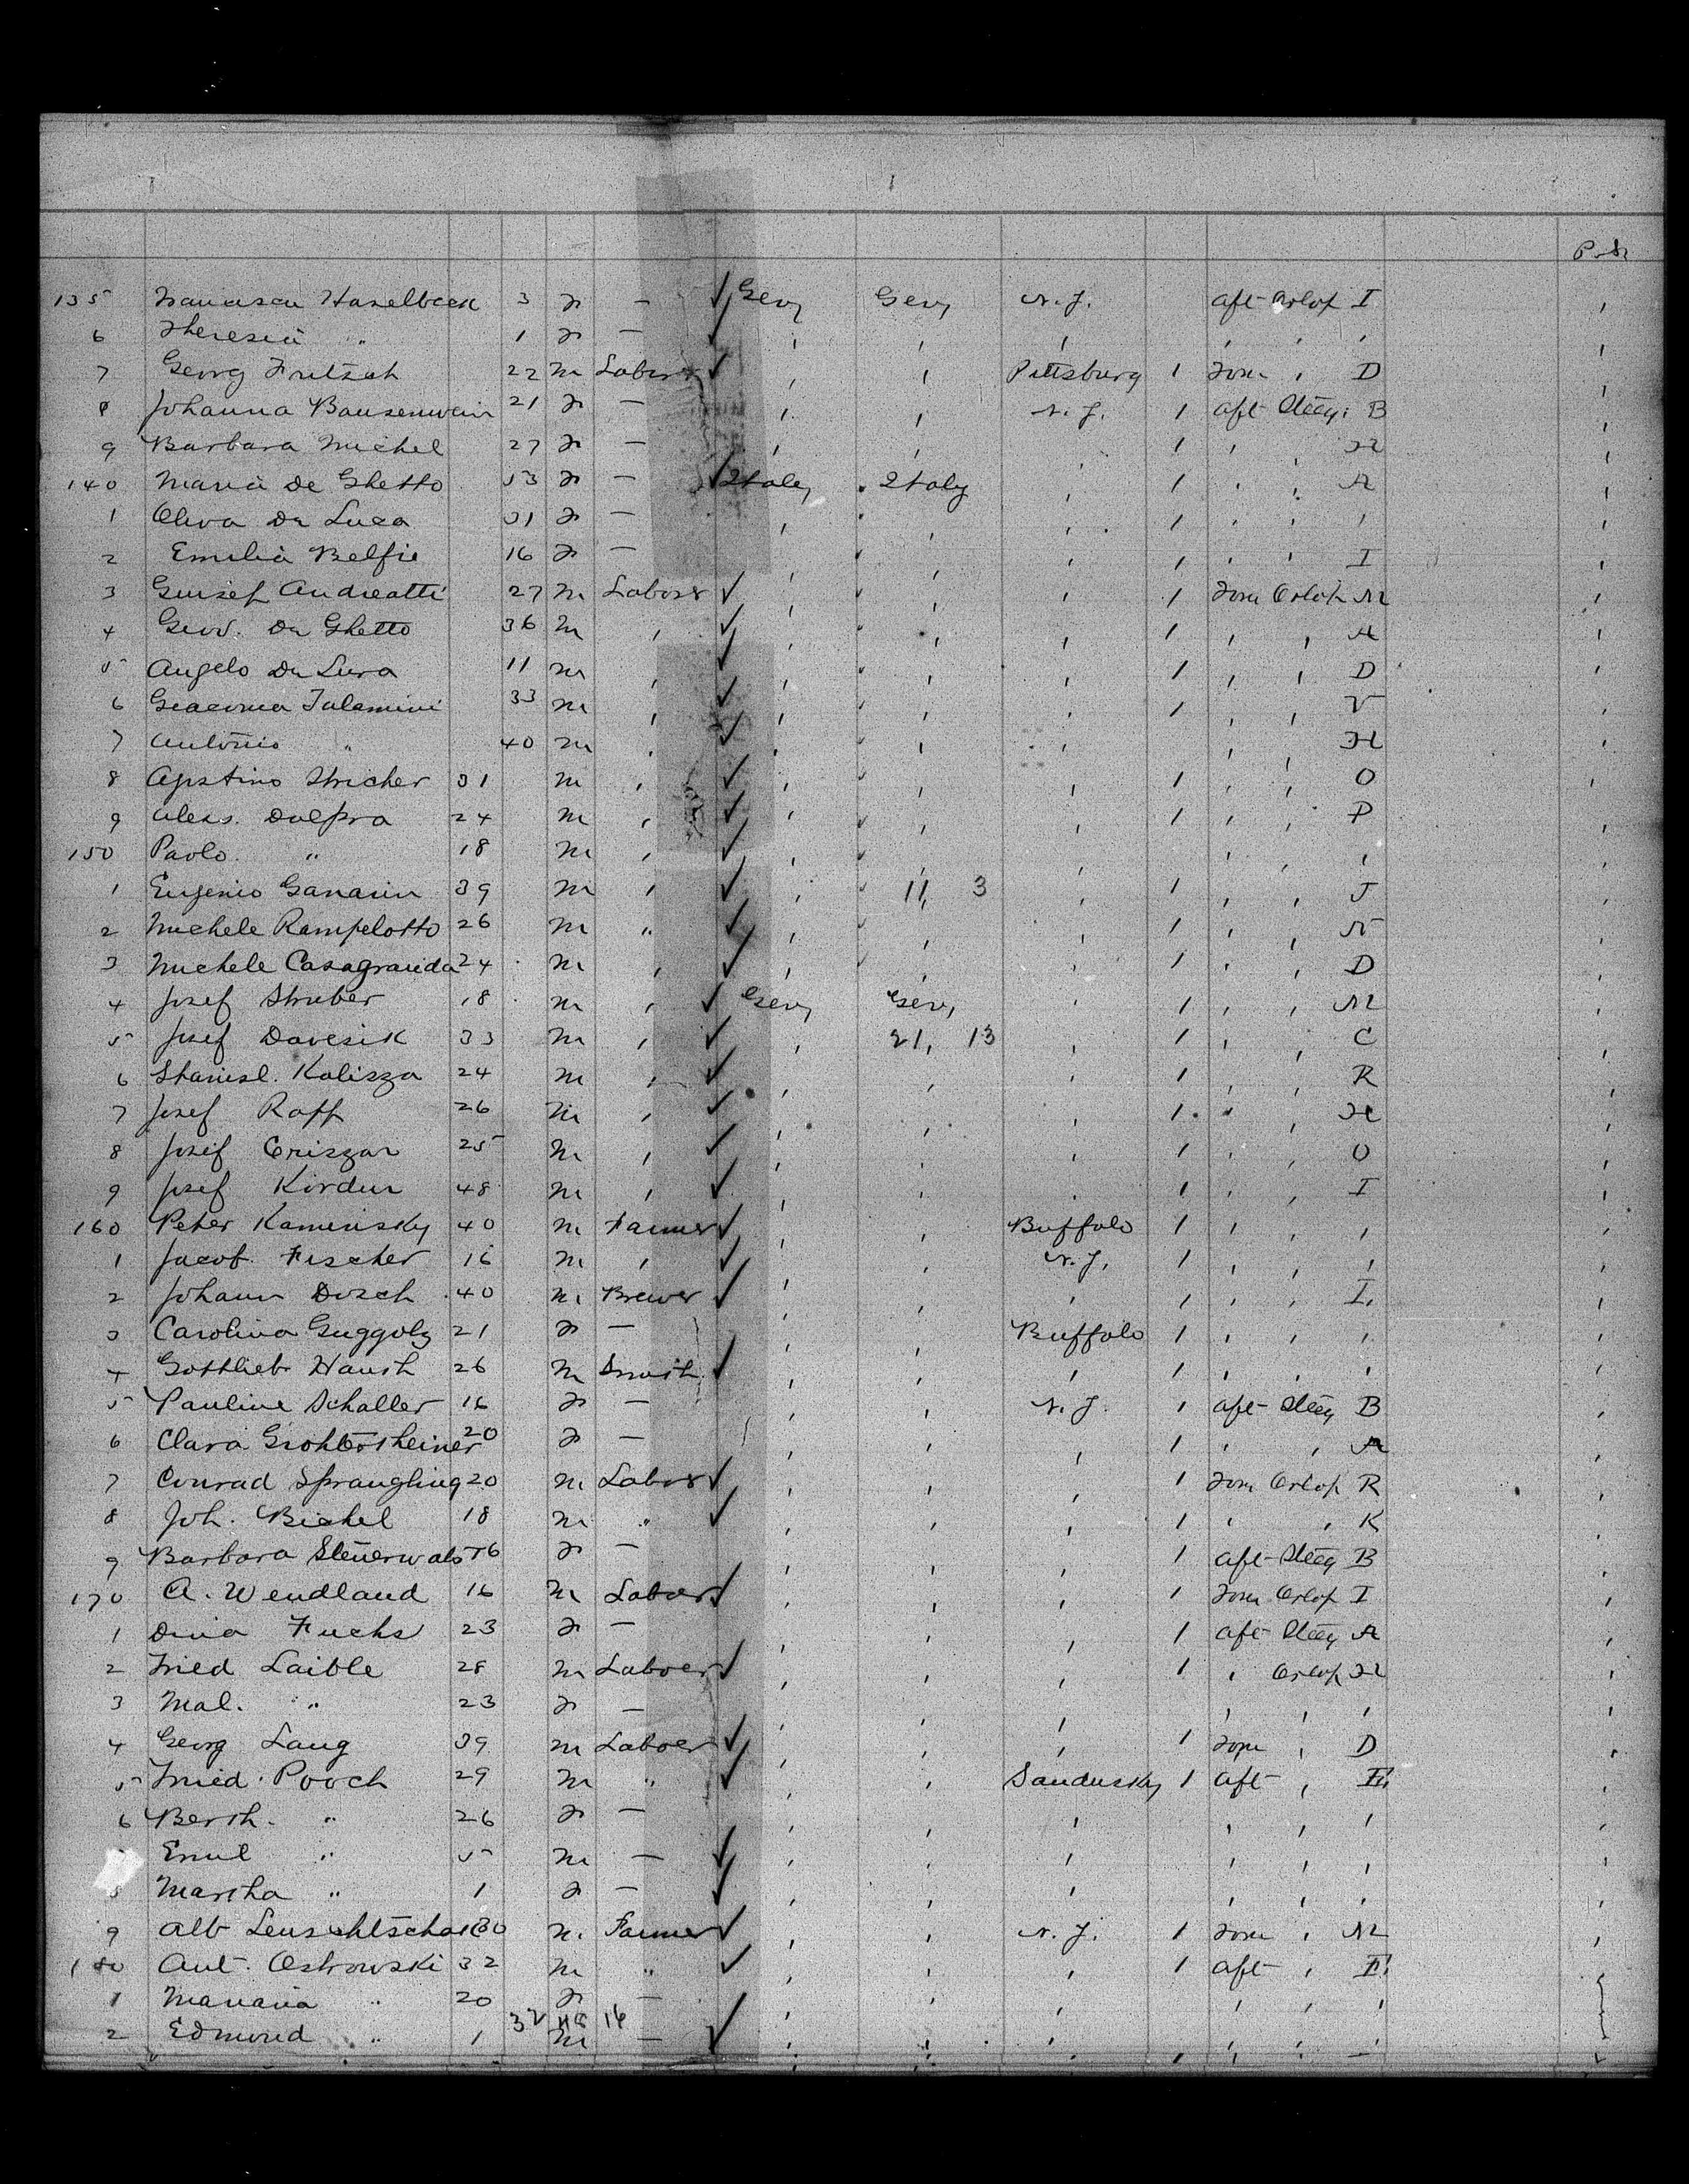 P.St
135 Francisca Haselbeck 3 F — ✓ Gery Gery N.Y. aft Orlop I ,
6 Theresia " 1 F — ✓ , , , , , , ,
7 Georg Fritzsch 22 M Labor ✓ , , Pittsburg 1 Forw , D ,
8 Johanna Bausenwein 21 F — , , N.Y. 1 aft Steeg. B ,
9 Barbara Michel 27 F — , , , 1 , , H ,
140 Maria De Ghetto 53 F — ✓ Italy Italy , 1 , , A ,
1 Oliva De Luca 31 F — , , , 1 , , , ,
2 Emilia Belfie 16 F — , , , 1 , , I ,
3 Guisef Andreatti 27 M Labors ✓ , , , 1 Forw Orlop M ,
4 Giov. De Ghetto 36 M , ✓ , , , 1 , , A ,
5 Angelo De Luca 11 M , ✓ , , , 1 , , D ,
6 Giacoma Talamini 33 M , ✓ , , , 1 , , V ,
7 Antonio " 40 M , ✓ , , , , , H ,
8 Agostino Stricher 31 M , ✓ , , , 1 , , O ,
9 Aless. Dalpra 24 M , ✓ , , , 1 , , P ,
150 Paolo. " 18 M , ✓ , , , , , , ,
1 Eugenio Ganarin 39 M , ✓ , 11, 3 , 1 , , J ,
2 Michele Rampelotto 26 M " ✓ , , , 1 , , N ,
3 Michele Casagranda 24 M , ✓ , , , 1 , , D ,
4 Josef Struber 18 M , ✓ Gery Gery , 1 , , M ,
5 Josef Davesik 33 M , ✓ , 21, 13 , 1 , , C ,
6 Stanisl. Kalisza 24 M , ✓ , , , 1 , , R ,
7 Josef Raff 26 M , ✓ , , , 1 , , H ,
8 Josif Criszar 25 M , ✓ , , , 1 , , O ,
9 Josef Kirdun 48 M , ✓ , , , 1 , , I ,
160 Peter Kaminsky 40 M Farmer ✓ , , Buffalo 1 , , , ,
1 Jacob Fischer 16 M , ✓ , , N.Y. 1 , , , ,
2 Johann Dosch 40 M Brewer ✓ , , , 1 , , I, ,
3 Carolina Guggolz 21 F — , , Buffalo 1 , , , ,
4 Gottlieb Haush 26 M Smith ✓ , , , 1 , , , ,
5 Pauline Schaller 16 F — , , N.Y. 1 aft Steeg B ,
6 Clara 20 F — , , , 1 , , A ,
7 Conrad Sprangling 20 M Labor ✓ , , , 1 Forw Orlop R ,
8 Joh. Bichel 18 M " ✓ , , , 1 , , K ,
9 Barbara Steuerwald 56 F — , , , 1 aft Steeg B ,
170 A. Wendland 16 M Labors ✓ , , , 1 Forw Orlop I ,
1 Dina Fuchs 23 F — , , , 1 aft Steeg A ,
2 Fried Laible 28 M Laboer ✓ , , , 1 , Orlop H ,
3 Mal. " 23 F — , , , , , , ,
4 Georg Lang 39 M Laboer ✓ , , , 1 Forw , D ,
5 Fried. Pooch 29 M " ✓ , , Sandusky 1 aft , II, ,
6 Berth. " 26 F — , , , , , , ,
Emil " 5 M — ✓ , , , , , , ,
8 Martha " 1 F — ✓ , , , , , , ,
9 Alb 30 M. Farmer ✓ , , N.Y. 1 Forw , M ,
180 Ant. Ostrowski 32 M " ✓ , , , 1 aft , II,
1 Mariana " 20 F — , , , , , ,
32 HG 16
2 Edmund " 1 M — ✓ , , , , , ,